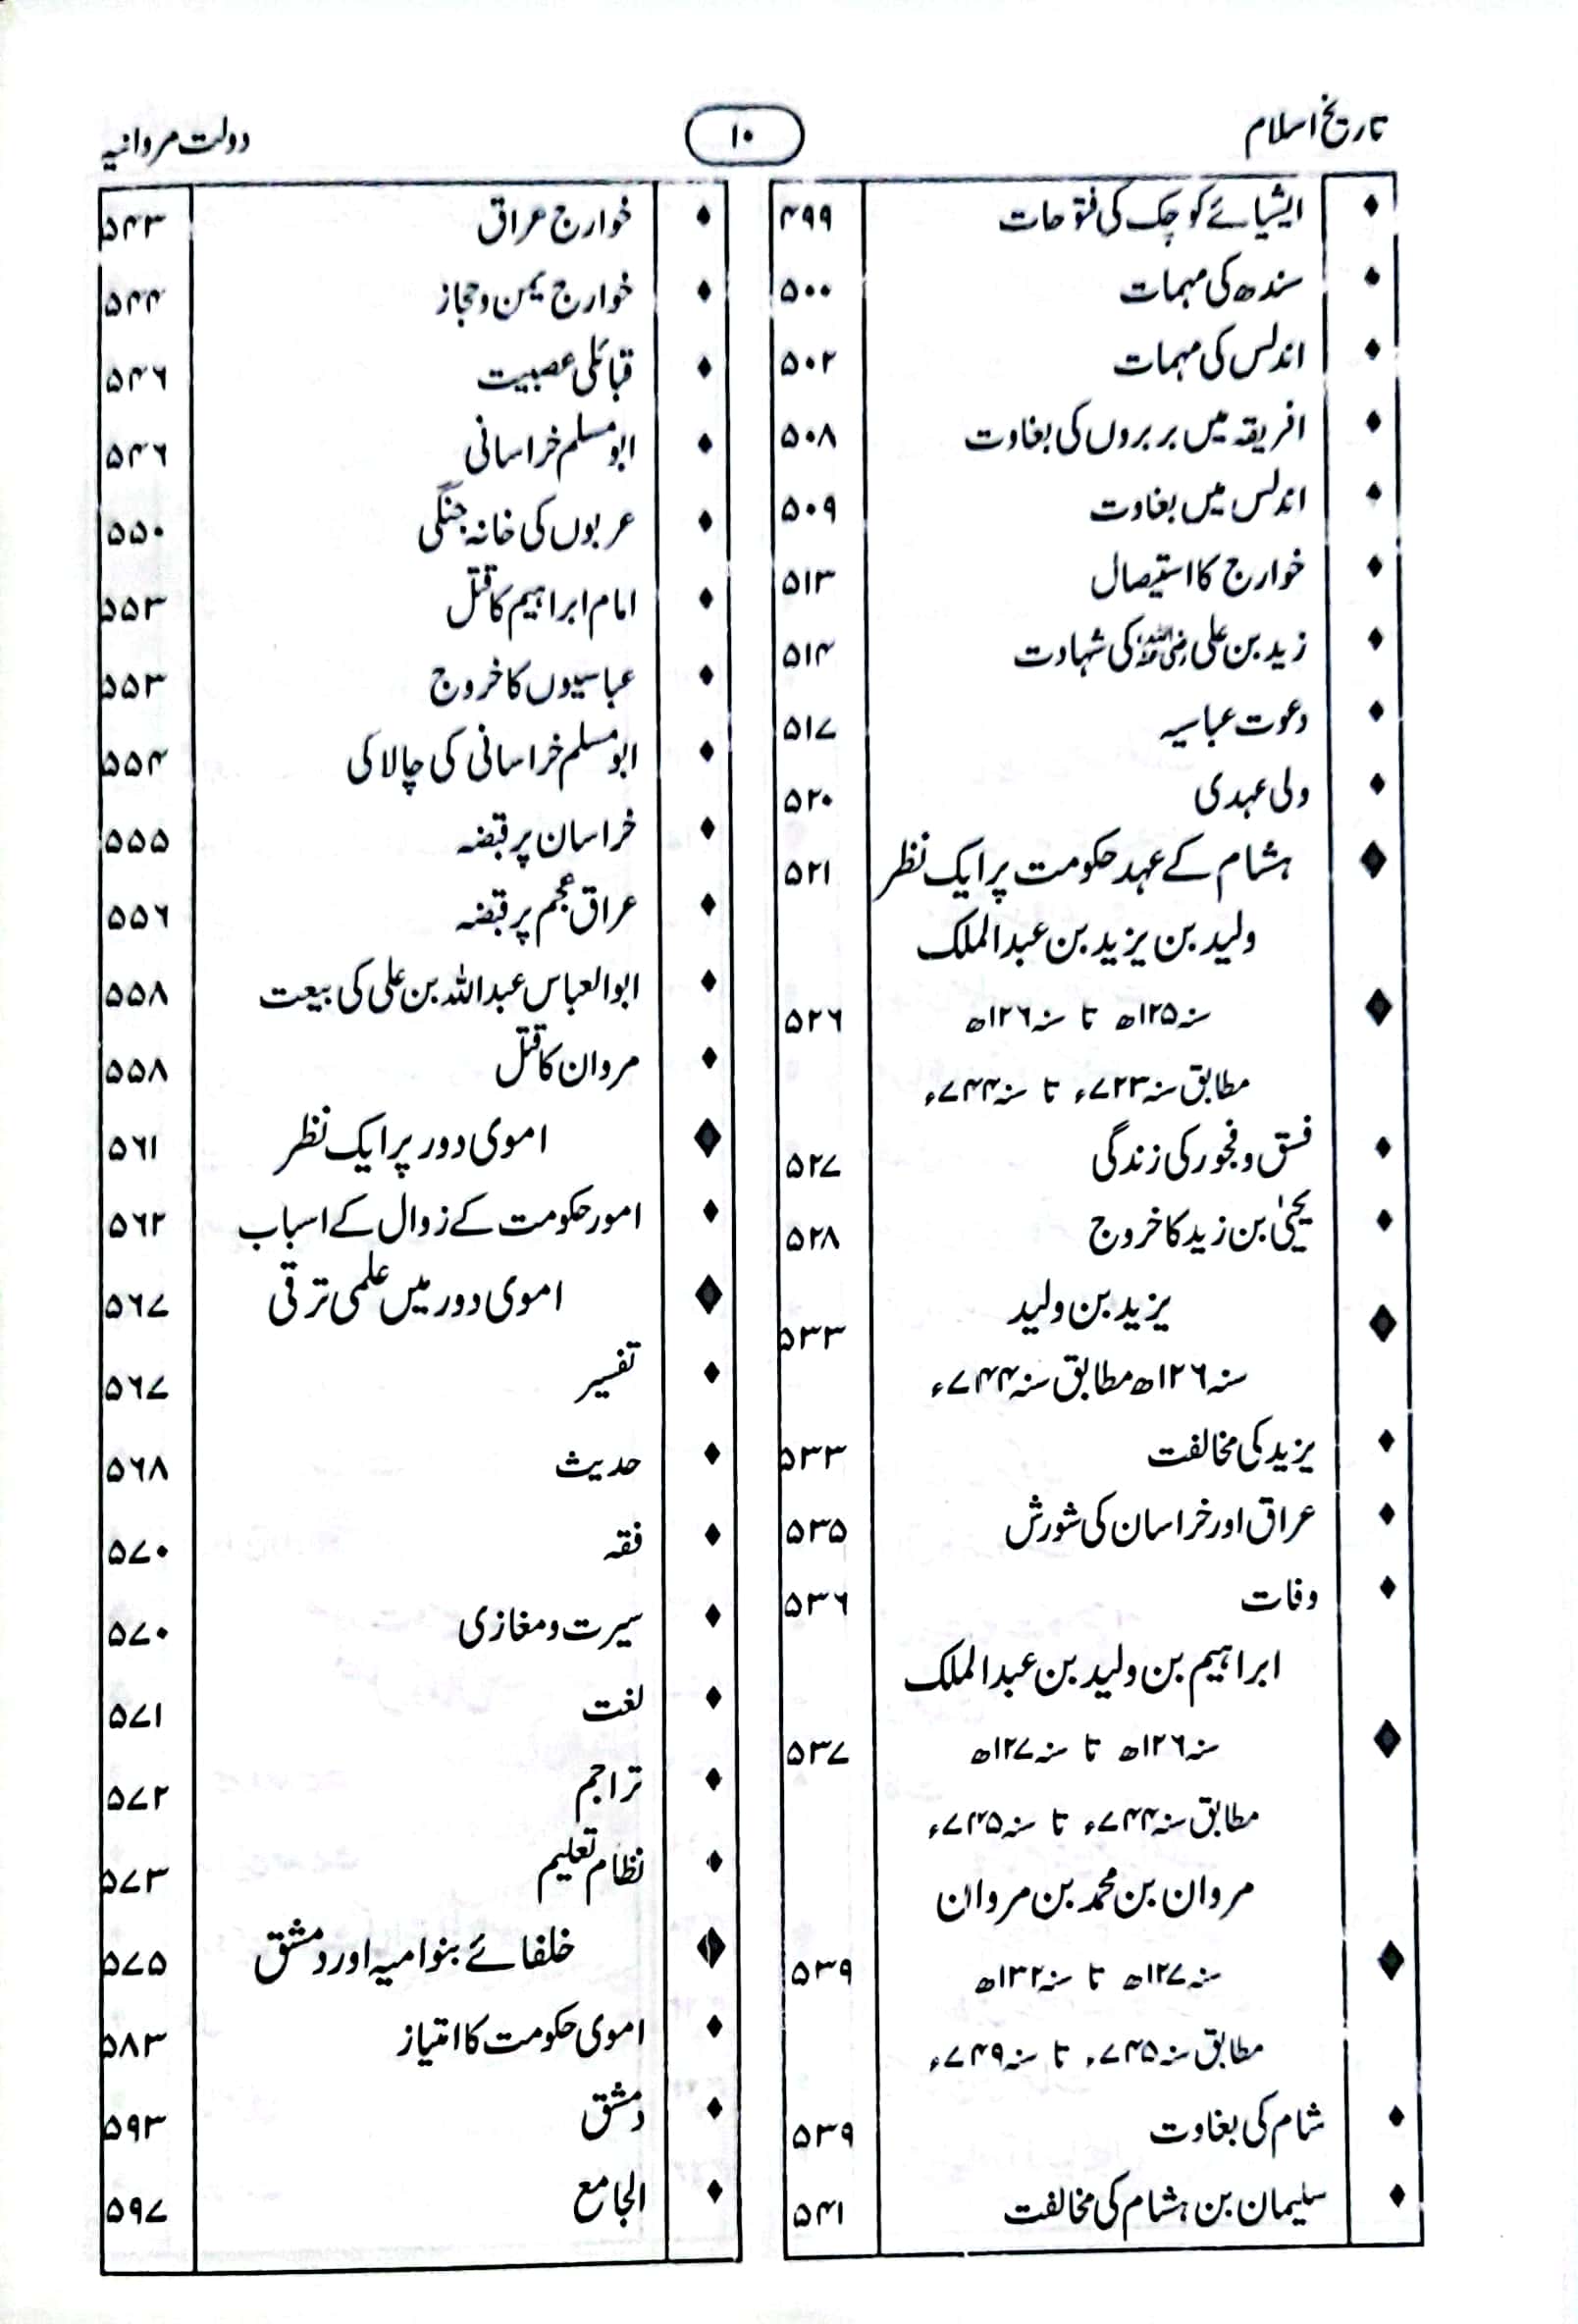 تاریخ اسلام
۱۰
دولت مروانیہ
ایشیائے کوچک کی فتوحات ۴۹۹
سندھ کی مہمات ۵۰۰
اندلس کی مہمات ۵۰۲
افریقہ میں بربروں کی بغاوت ۵۰۸
اندلس میں بغاوت ۵۰۹
خوارج کا استیصال ۵۱۳
زید بن علی رضی اللہ عنہ کی شہادت ۵۱۴
دعوت عباسیہ ۵۱۷
ولی عہدی ۵۲۰
ہشام کے عہد حکومت پر ایک نظر ۵۲۱
ولید بن یزید بن عبدالملک
سنہ ۱۲۵ھ تا سنہ ۱۲۶ھ ۵۲۶
مطابق سنہ ۷۲۳ء تا سنہ ۷۴۴ء
فسق و فجور کی زندگی ۵۲۷
یحییٰ بن زید کا خروج ۵۲۸
یزید بن ولید ۵۳۳
سنہ ۱۲۶ھ مطابق سنہ ۷۴۴ء
یزید کی مخالفت ۵۳۳
عراق اور خراسان کی شورش ۵۳۵
وفات ۵۳۶
ابراہیم بن ولید بن عبدالملک
سنہ ۱۲۶ھ تا سنہ ۱۲۷ھ ۵۳۷
مطابق سنہ ۷۴۴ء تا سنہ ۷۴۵ء
مروان بن محمد بن مروان
سنہ ۱۲۷ھ تا سنہ ۱۳۲ھ ۵۳۹
مطابق سنہ ۷۴۵ء تا سنہ ۷۴۹ء
شام کی بغاوت ۵۳۹
سلیمان بن ہشام کی مخالفت ۵۴۱
خوارج عراق ۵۴۳
خوارج یمن و حجاز ۵۴۴
قبائلی عصبیت ۵۴۶
ابومسلم خراسانی ۵۴۶
عربوں کی خانہ جنگی ۵۵۰
امام ابراہیم کا قتل ۵۵۳
عباسیوں کا خروج ۵۵۳
ابومسلم خراسانی کی چالاکی ۵۵۴
خراسان پر قبضہ ۵۵۵
عراق عجم پر قبضہ ۵۵۶
ابوالعباس عبداللہ بن علی کی بیعت ۵۵۸
مروان کا قتل ۵۵۸
اموی دور پر ایک نظر ۵۶۱
امور حکومت کے زوال کے اسباب ۵۶۲
اموی دور میں علمی ترقی ۵۶۷
تفسیر ۵۶۷
حدیث ۵۶۸
فقہ ۵۷۰
سیرت و مغازی ۵۷۰
لغت ۵۷۱
تراجم ۵۷۲
نظام تعلیم ۵۷۳
خلفائے بنوامیہ اور دمشق ۵۷۵
اموی حکومت کا امتیاز ۵۸۳
دمشق ۵۹۳
الجامع ۵۹۷